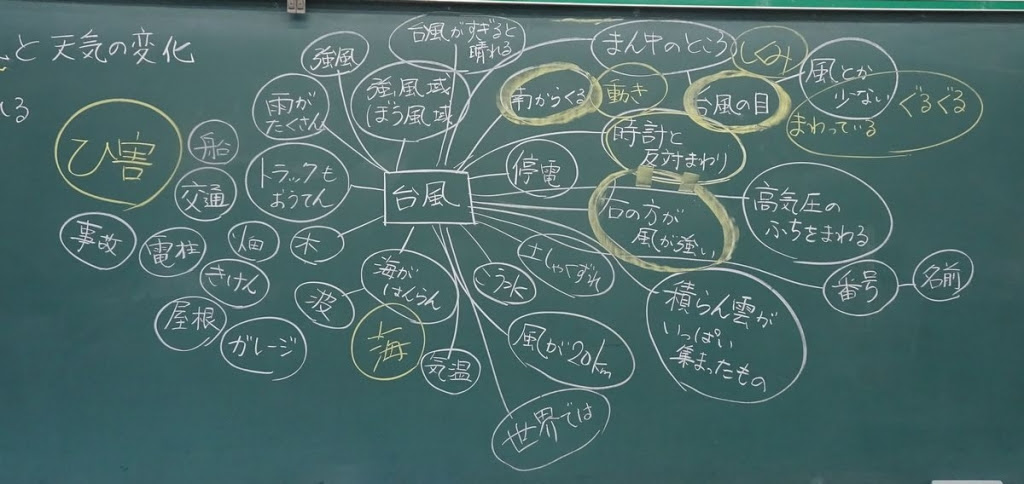 と 天気の変化
る
ひ害
船
交通
事故
電柱
畑
木
きけん
屋根
ガレージ
強風
台風がすぎると
晴れる
雨が
たくさん
強風域
ぼう風域
トラックも
おうてん
台風
海が
はんらん
波
海
気温
こう水
土しゃくずれ
風が20km
世界では
停電
雨からくる
動き
まん中のところ
しくみ
台風の目
風とか
少ない
ぐるぐる
まわっている
時計と
反対まわり
右の方が
風が強い
高気圧の
ふちをまわる
番号
名前
積らん雲が
いっぱい
集まったもの